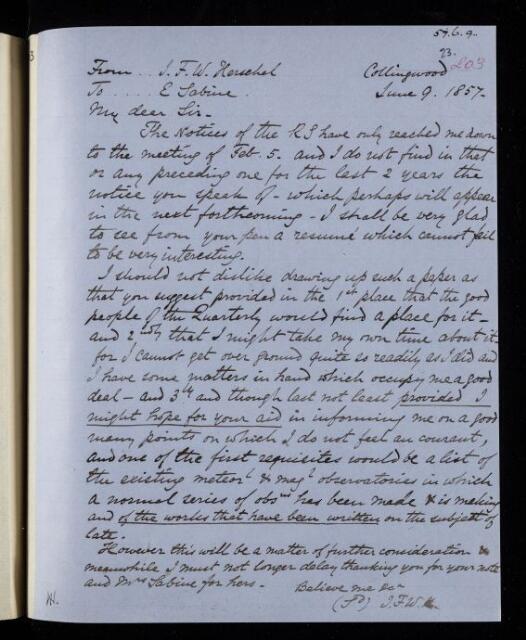 57.6.9.
23.
203
From .. J.F.W. Herschel Collingwood
To .... E Sabine. June 9. 1857.
My dear Sir -
The Notices of the RS have only reached me down
to the meeting of Feb. 5. and I do not find in that
or any preceding one for the last 2 years the
notice you speak of - which perhaps will appear
in the next forthcoming - I shall be very glad
to see from your pen a resumé which cannot fail
to be very interesting.
I should not dislike drawing up such a paper as
that you suggest provided in the 1st place that the good
people of the Quarterly would find a place for it -
and 2ndly that I might take my own time about it
for I cannot get over ground quite as readily as I did and
I have some matters in hand which occupy me a good
deal - and 3ly and though last not least provided I
might hope for your aid in informing me on a good
many points on which I do not feel au courant,
and one of the first requisites would be a list of
the existing meteorl & magl observatories in which
a normal series of obsns has been made & is making
and of the works that have been written on the subject of
late.
However this will be a matter of further consideration &
meanwhile I must not longer delay thanking you for your note
and Mrs Sabine for hers - Believe me &c
(Sd) J.F.W.H.